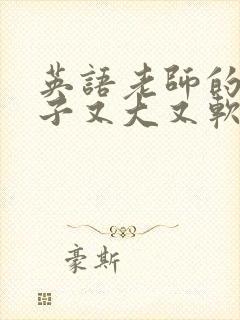 英語老師的
子又大又軟
豪斯